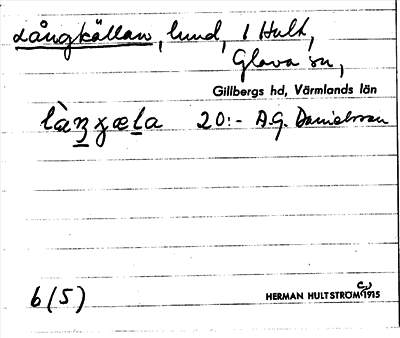 Långkällan, lund, i Hult,
Glava sn,
Gillbergs hd, Värmlands län
20:- A.G. Danielsson
6(5)
HERMAN HULTSTRÖM 1915